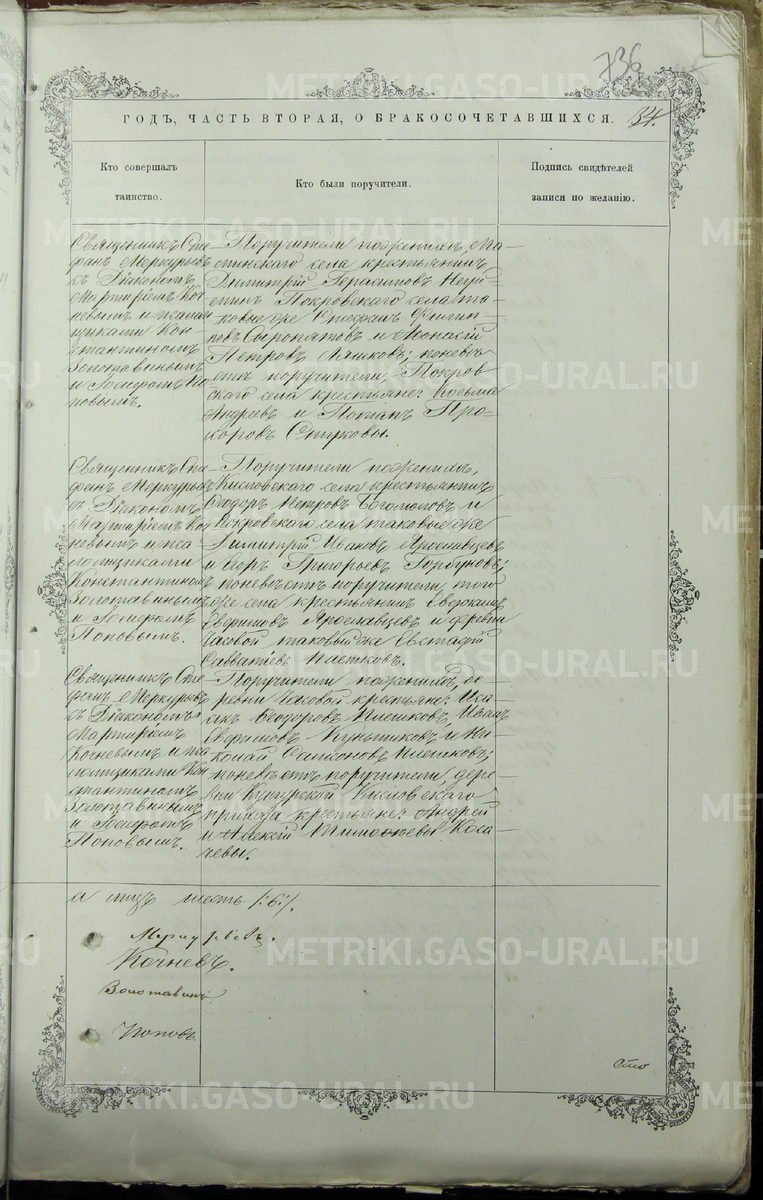 736
ГОДЪ, ЧАСТЬ ВТОРАЯ, О БРАКОСОЧЕТАВШИХСЯ.
134.
Кто совершалъ
таинство.
Кто были поручители.
Подпись свидѣтелей
записи по желанію.
Священникъ Сте-
фанъ Меркурьевъ
съ Діакономъ
Мартиріемъ Коч-
невымъ и псалом-
щиками Кон-
стантиномъ
Золотавинымъ
и Іосифомъ По-
повымъ.
Поручители по женихѣ, Ма-
минскаго села крестьянинъ
Димитрій Герасимовъ
Покровскаго села та-
ковые же Стефанъ Филип-
повъ и Аѳонасій
Петровъ Ляшковъ; по невѣс-
тѣ поручители, Покров
скаго села крестьяне: Косьма
Андреевъ и Потапъ Про-
хоровъ
Священникъ Сте-
фанъ Меркурьевъ
съ Діакономъ
Мартиріемъ Коч
невымъ и пса-
ломщиками
Константиномъ
Золотавинымъ
и Іосифомъ
Поповымъ.
Поручители по женихѣ,
Кисловскаго села крестьянинъ
Ѳеодоръ Петровъ Богомоловъ и
Покровскаго села таковые же
Димитрій Ивановъ Ярославцевъ
и Егоръ Григорьевъ Горбуновъ;
по невѣстѣ поручители, того
же села крестьянинъ Евдокимъ
Евфимовъ Ярославцевъ и деревни
Часовой таковый же Евстафій
Савватіевъ Клешковъ.
Священникъ Сте-
фанъ Меркурьевъ
съ Діакономъ
Мартиріемъ
Кочневымъ и пса
ломщиками Кон
стантиномъ
Золотавинымъ
и Іосифомъ
Поповымъ.
Поручители по женихѣ, де-
ревни Часовой крестьяне: Иса-
акъ Ѳеодоровъ Клешковъ, Иванъ
Евфимовъ и Ни-
колай Самсоновъ Клешковъ;
по невѣстѣ поручители, дере-
вни Кисловскаго
прихода крестьяне: Андрей
и Алексій Тимоѳеевы Коса-
чевы.
а шесть /:6:/.
Меркурьевъ.
Кочневъ.
Золотавинъ
Поповъ.
Сто
METRIKI.GASO-URAL.RU